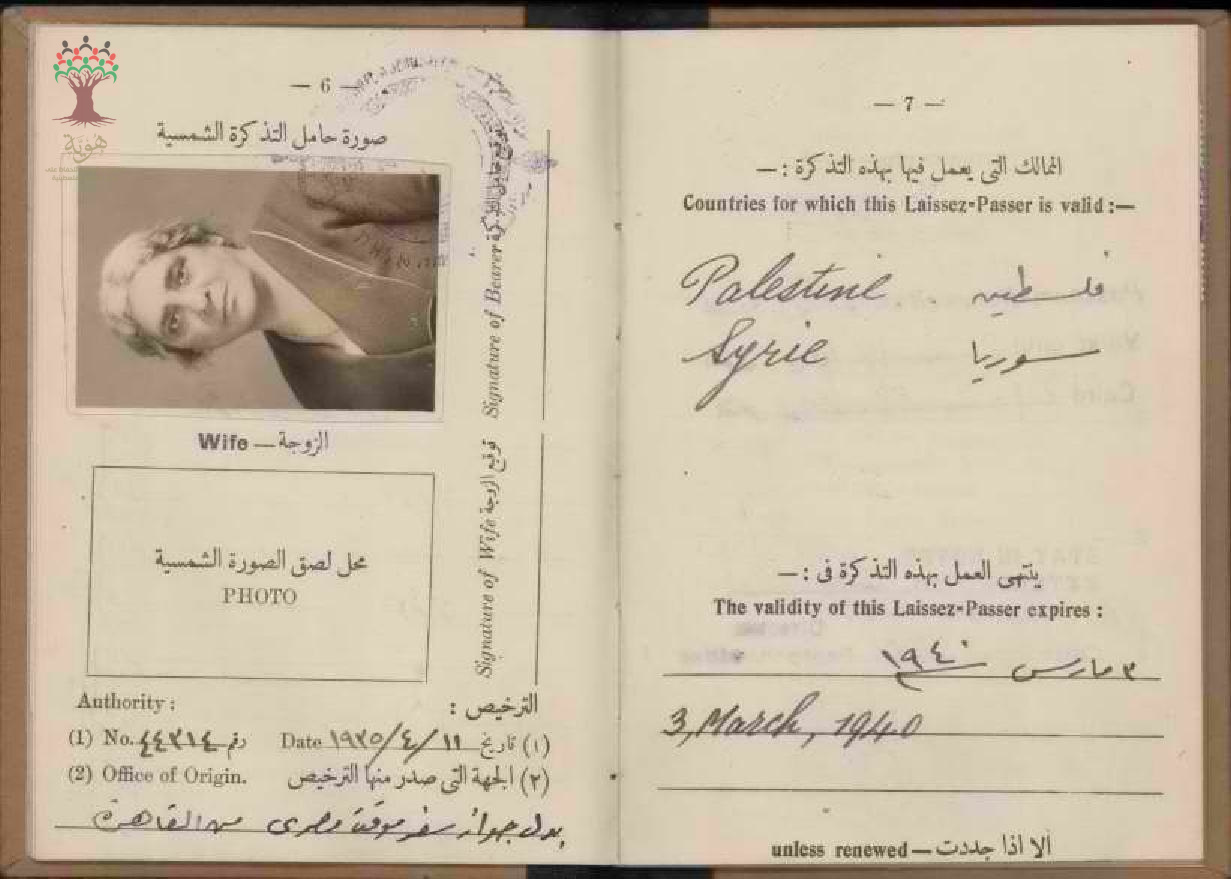 هوية
— 6 —
صورة حامل التذكرة الشمسية
توقيع حامل التذكرة Signature of Bearer
Wife — الزوجة
توقيع الزوجة Signature of Wife
محل لصق الصورة الشمسية
PHOTO
Authority : الترخيص :
(1) No. ٤٤٣١٤ رقم Date ١٩٣٥/٤/١١ تاريخ (١)
(2) Office of Origin. الجهة التى صدر منها الترخيص (٢)
بدل جواز سفر موقت مصرى من القاهرة
— 7 —
الممالك التى يعمل فيها بهذه التذكرة : —
Countries for which this Laissez-Passer is valid :—
Palestine فلسطين
Syrie سوريا
ينتهى العمل بهذه التذكرة فى : —
The validity of this Laissez-Passer expires :
٣ مارس سنة ١٩٤٠
3, March, 1940
unless renewed — الا اذا جددت